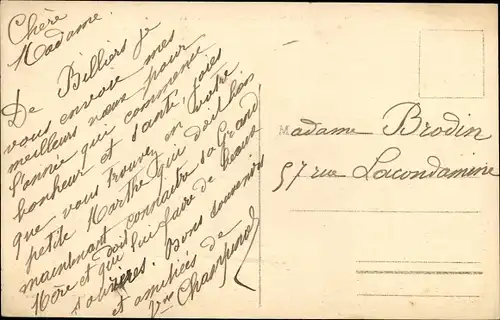 Chère
Madame
De Billiers je
vous envoie mes
meilleurs vœux pour
l'année qui commence
bonheur et santé, joies
que vous trouvez en votre
petite Marthe qui doit bien
maintenant connaitre sa Grand
Mère et doit lui faire de beaux
sourires. Bons souvenirs
et amitiés de
Madame Brodin
57 rue Lacondamine